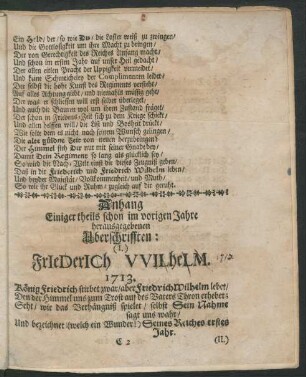 Ein Held/ der/ so wie Du/ die Laster weiß zu zwingen/
Und die Gottlosigkeit um ihre Macht zu bringen/
Der von Gerechtigkeit des Reiches Anfang macht/
Und schon im ersten Jahr auf unser Heil gedacht/
Der allen eitlen Pracht der Uppigkeit vermeidet/
Und kahle Schmeicheley der Complimenten leidet/
Der selbst die hohe Kunst des Regiments versteht/
Auf alles Achtung giebt/ und niemahls müßig geht/
Der was er schliessen will erst selber überleget/
Und auch die Bauren wol um ihren Zustand fräget/
Der schon im Friedens-Zeit sich zu dem Kriege schickt/
Und allen helffen will/ die List und Boßheit drückt/
Wie solte dem es nicht nach seinem Wunsch gelingen/
Die alte güldne Zeit von neuen herzubringen?
Der Himmel steh Dir nur mit seiner Gnade bey/
Damit Dein Regiment so lang als glücklich sey/
So wird die Nach-Welt einst die dieses Zeugniß geben/
Daß in die Friederich und Friedrich Wilhelm leben/
Und beyder Majestät/ Vollkommenheit/ und Muth/
So wie ihr Glück und Ruhm/ zugleich auf dir geruht.
Anhang
Einiger theils schon im vorigen Jahre
herausgegebenen
Uberschrifften:
(I.)
FrIeDerICh VVILheLM. 1713.
1713.
König Friedrich stirbet zwar/ aber Friedrich Wilhelm lebet/
Den der Himmel uns zum Trost auf des Vaters Thron erhebet:
Seht/ wie das Verhängniß spielet/ selbst Sein Nahme
sagt uns wahr/
Und bezeichnet (welch ein Wunder!) Seines Reiches erstes
Jahr.
C 2 (II.)